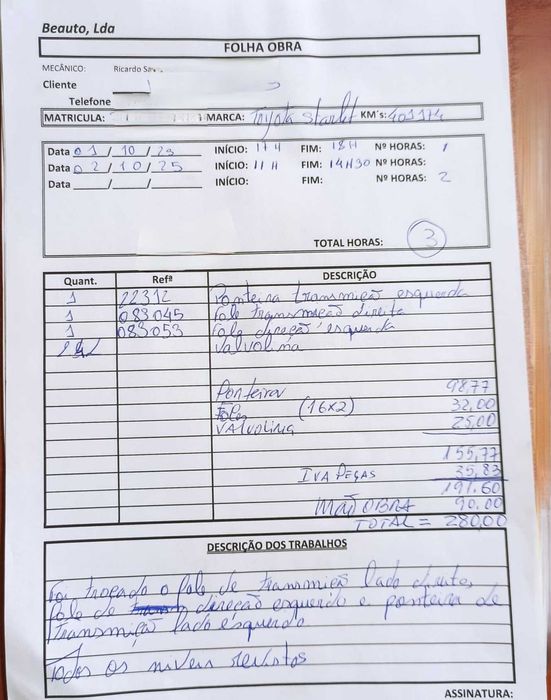 Beauto, Lda
FOLHA OBRA
MECÂNICO: Ricardo
Cliente
Telefone
MATRICULA: MARCA: Toyota Starlet KM's: 401174
Data 01 / 10 / 25 INÍCIO: 17H FIM: 18H Nº HORAS: 1
Data 02 / 10 / 25 INÍCIO: 11H FIM: 14H30 Nº HORAS:
Data / / INÍCIO: FIM: Nº HORAS: 2
TOTAL HORAS: 3
Quant. Refª DESCRIÇÃO
1 22312 Ponteira transmição esquerda
1 083045 fole transmição direita
1 083053 fole direção esquerda
Valvolina
Ponteira 98,77
Foles (16x2) 32,00
VALVOLINA 25,00
155,77
IVA PEÇAS 35,83
191,60
MÃO OBRA 90,00
TOTAL = 280,00
DESCRIÇÃO DOS TRABALHOS
Foi trocado o fole de transmição lado direito,
fole de direcção esquerdo e ponteira de
transmição lado esquerdo
Todos os niveis revistos
ASSINATURA: